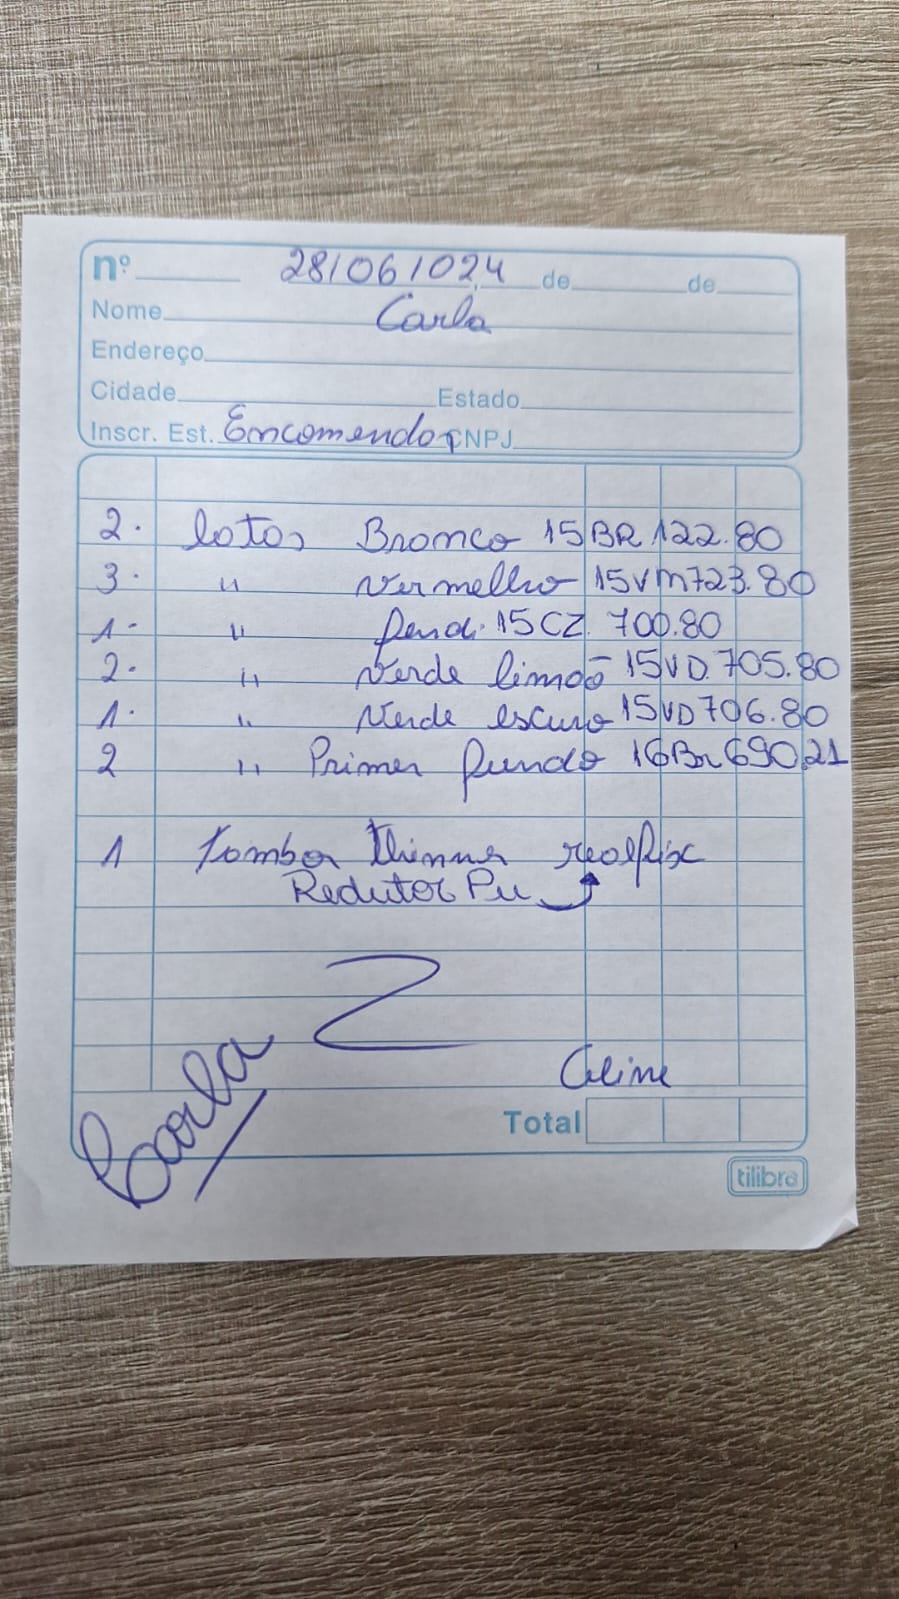 nº 28/06/024 de de
Nome Carla
Endereço
Cidade Estado
Inscr. Est. Encomenda CNPJ
2. latas Branco 15BR.122.80
3. " Vermelho 15VM723.80
1- " 15CZ.700.80
2- " Verde limão 15VD.705.80
1. " Verde escuro 15VD706.80
2 " Primer fundo 16Br69021
1 Tambor thinner realfix
Redutor Pu
Celine
Carla
Total
tilibra